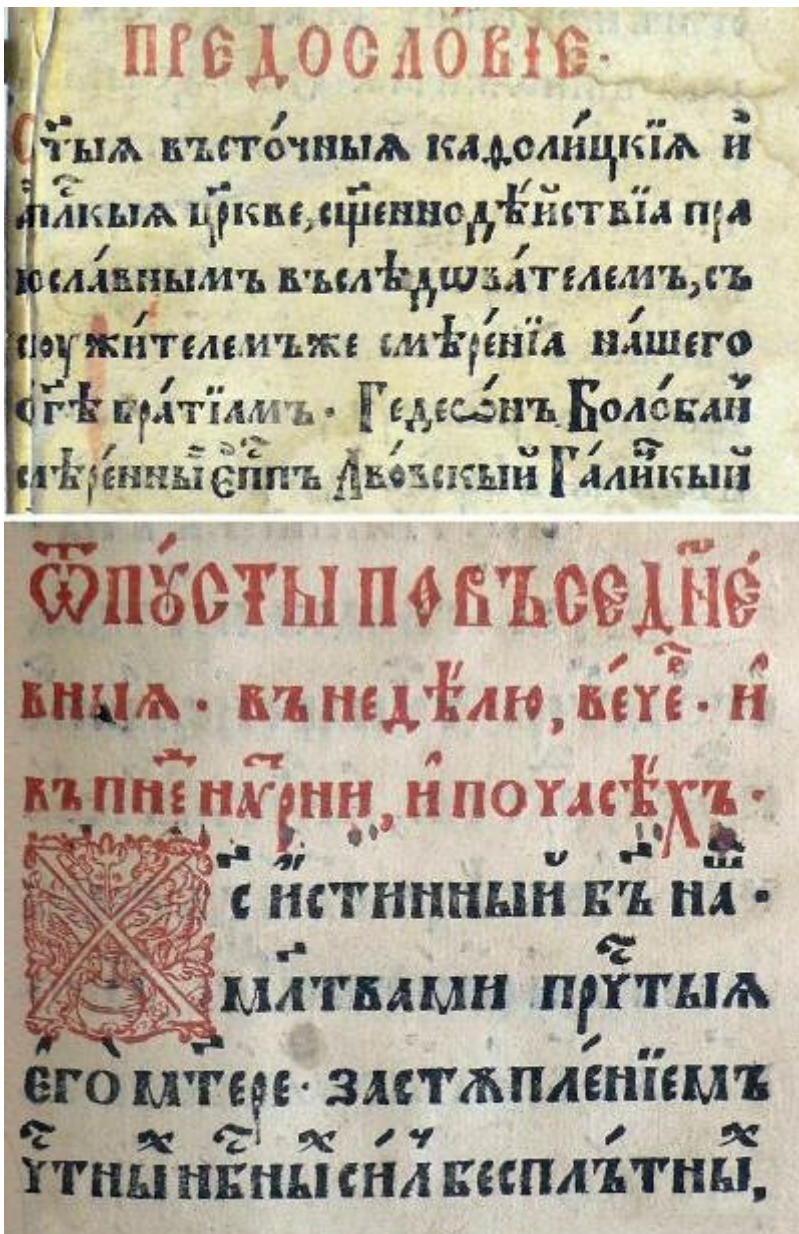 ПРЕДОСЛО́ВІЕ·
Ст҃ыѧ въсто́чныѧ каѳоли́цкїѧ и҆
цр҃кве, сщ҃еннодѣ́йствїа пра
въслѣдѡва́телемъ, съ
смѣре́нїа на́шего
бра́тїамъ· Гедеѡ́нъ Боло́бан
смѣре́нный Є҆пⷭ҇пъ Лво́вскый Га́лиⷱ҇кый
Ѿпꙋ́сты повъседн҃е́
вныѧ· въ недѣ́лю, ве́чеⷬ҇· и҆
въ пн҃е на ᲂу҆́трни, и҆ по часѣ́хъ·
Хс҃ и҆́стинный бг҃ъ наⷲ҇·
мл҃твами прⷱ҇тыѧ
є҆го̀ мт҃ере· застѫпле́нїемъ
чⷭ҇тныⷯ нбⷭ҇ныⷯ си́л бесплъ́тныⷯ,